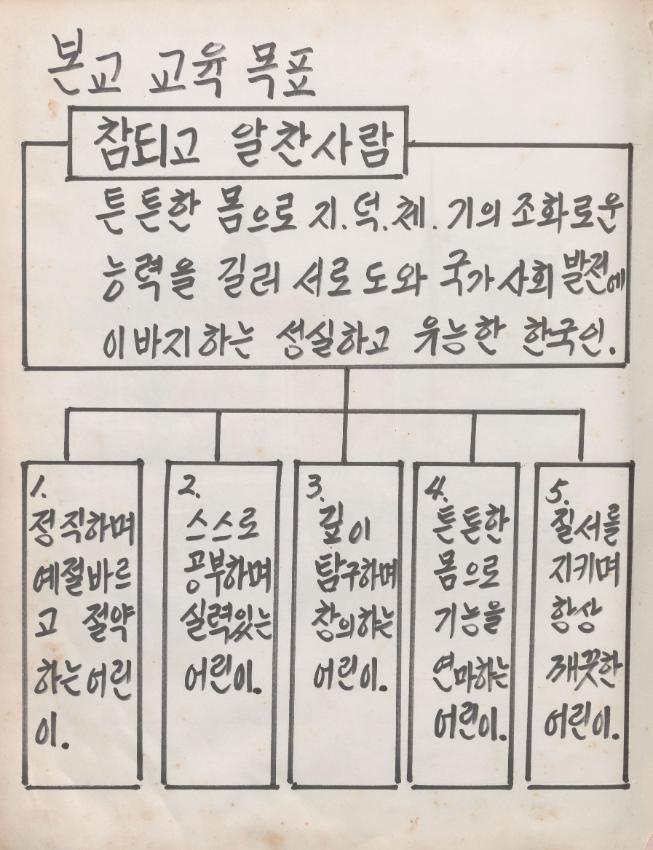 본교 교육 목표
참되고 알찬사람
튼튼한 몸으로 지.덕.체.기의 조화로운
능력을 길러 서로 도와 국가 사회 발전에
이바지하는 성실하고 유능한 한국인.
1.
정직하며
예절바르
고 절약
하는어린
이.
2.
스스로
공부하며
실력있는
어린이.
3.
깊이
탐구하며
창의하는
어린이.
4.
튼튼한
몸으로
기능을
연마하는
어린이.
5.
질서를
지키며
항상
깨끗한
어린이.